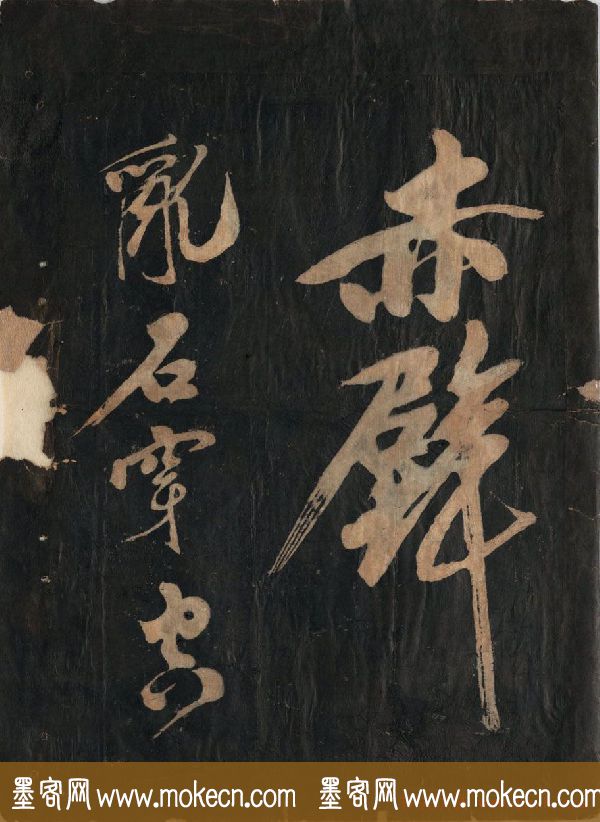 赤壁
亂石穿空
墨客网 www.mokecn.com 墨客网 www.mokecn.com